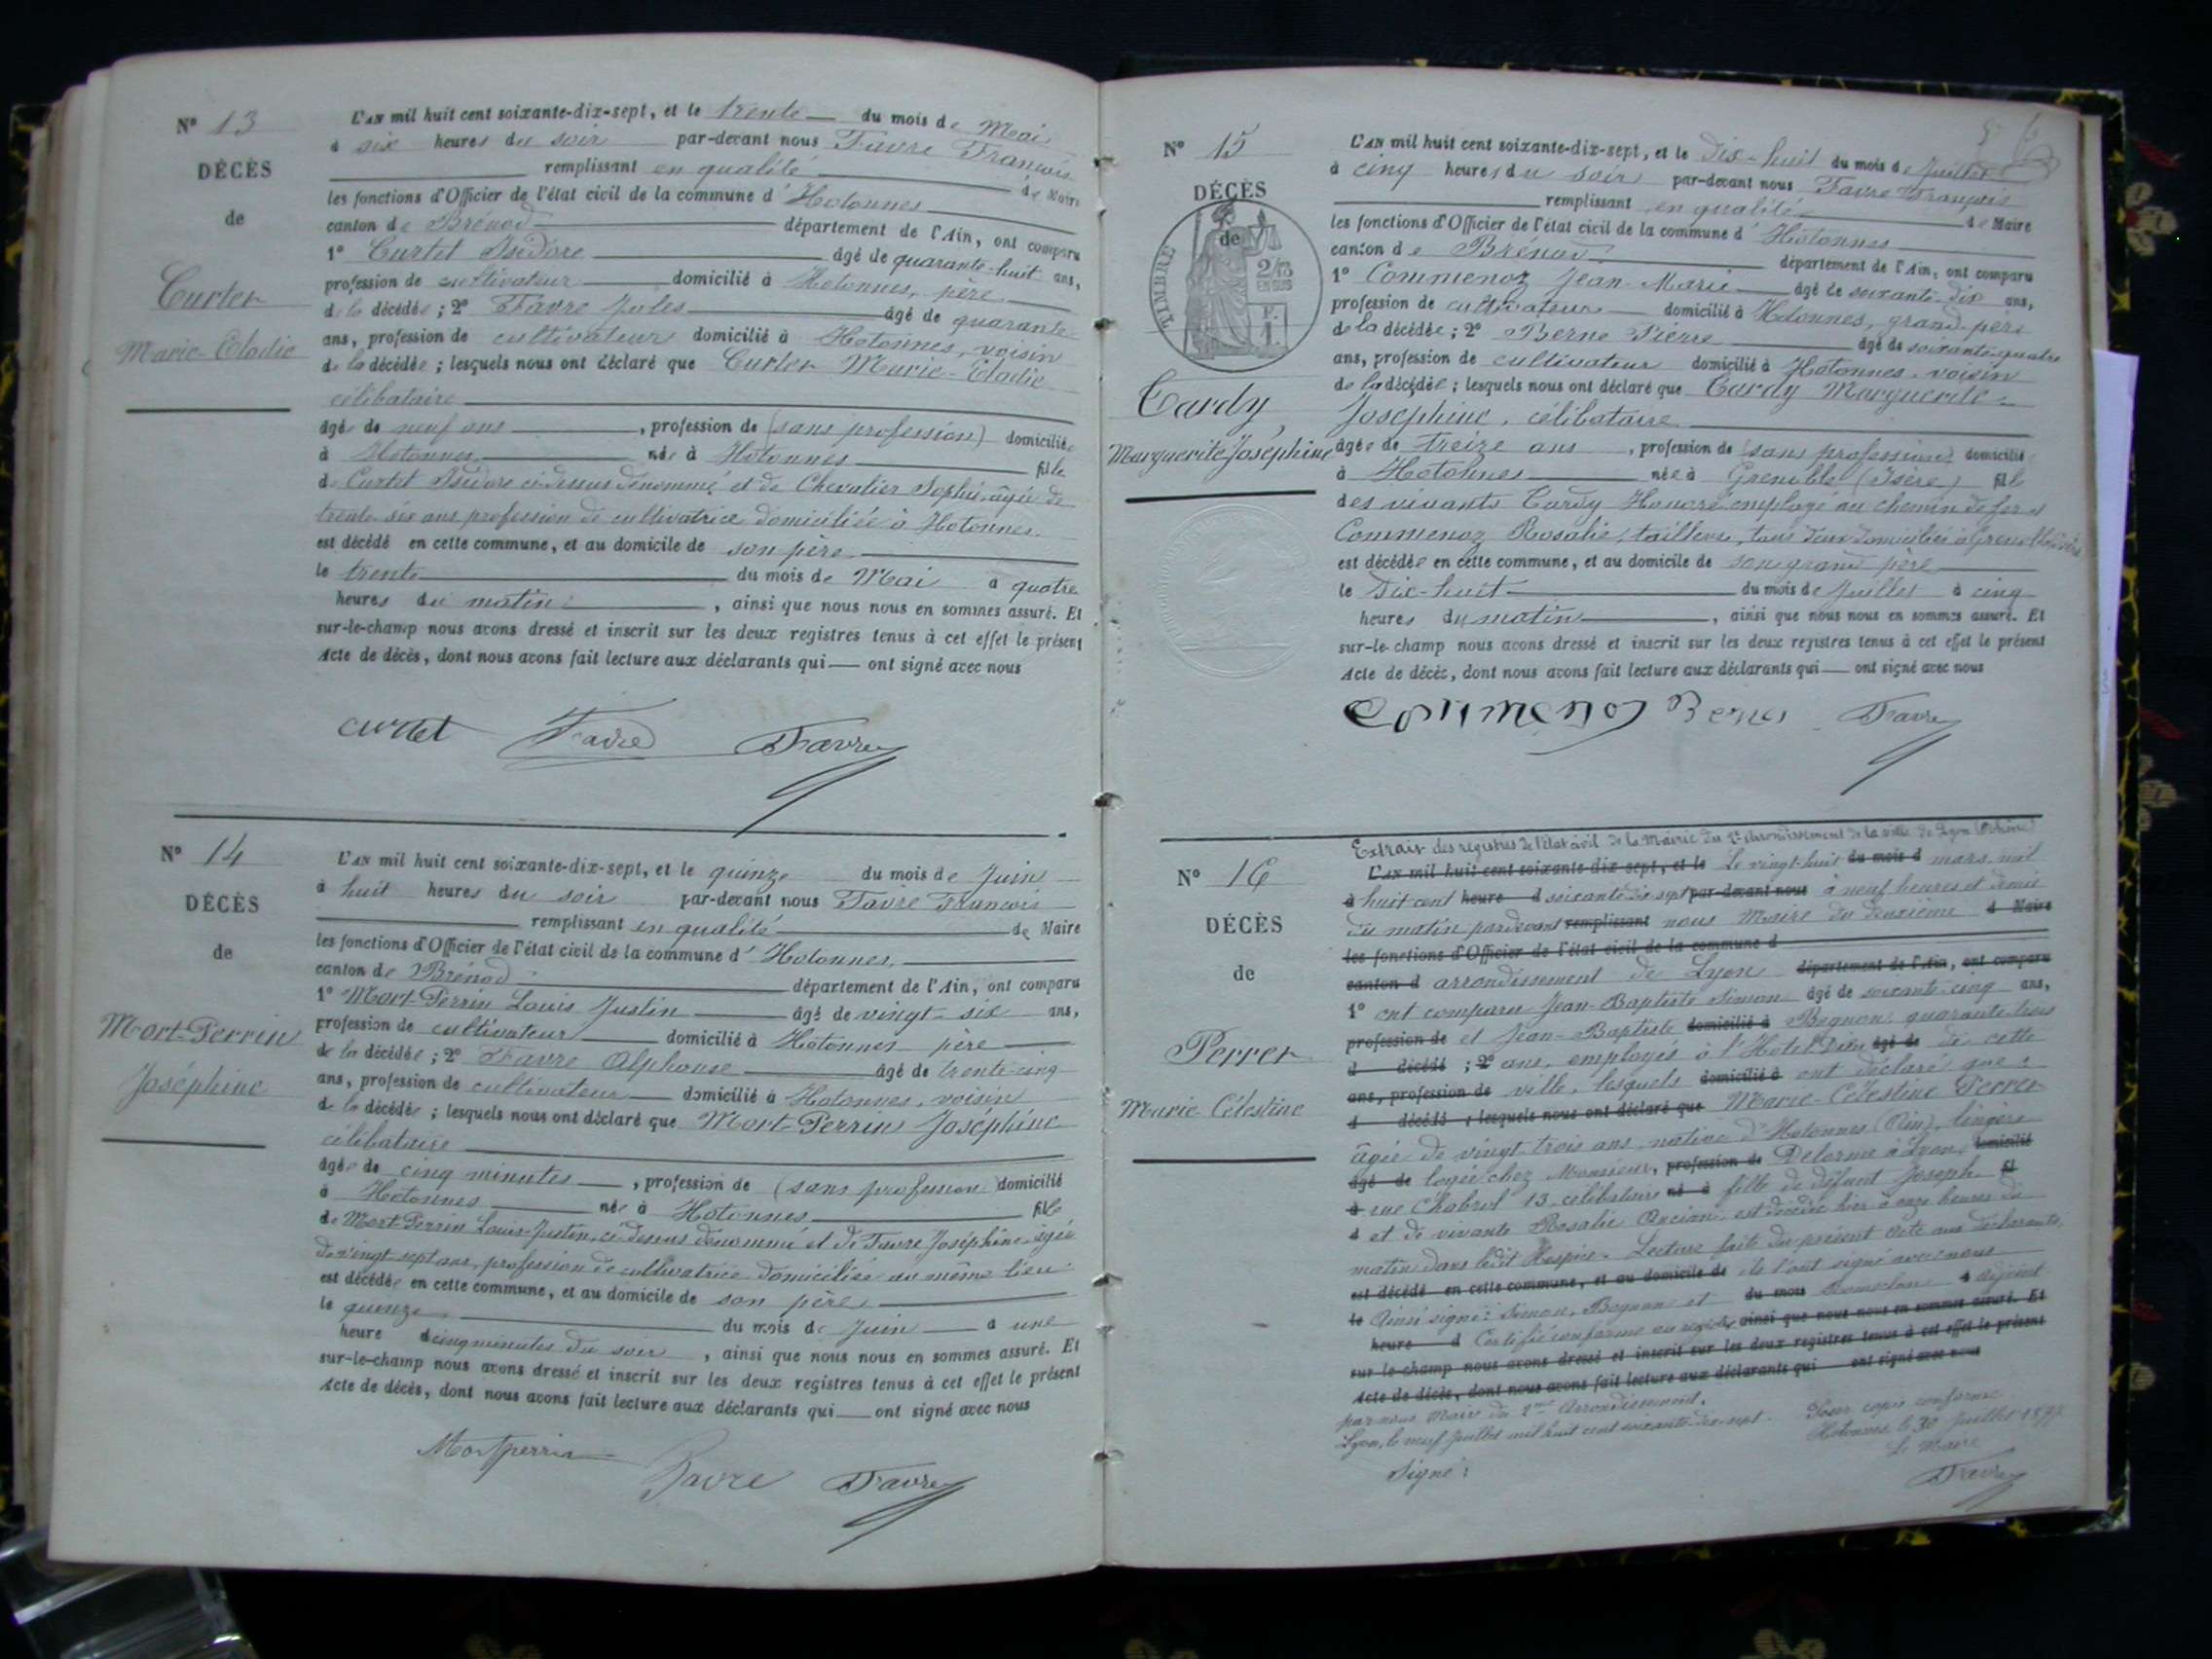 N° 13
DÉCÈS
de
Curtet
Marie-Elodie
L'AN mil huit cent soixante-dix-sept, et le trente du mois de Mai
à six heures du soir par-devant nous Favre François
remplissant en qualité de Maire
les fonctions d'Officier de l'état civil de la commune d'Hotonnes
canton de Brénod département de l'Ain, ont comparu
1° Curtet Isidore âgé de quarante-huit ans,
profession de cultivateur domicilié à Hotonnes, père
de la décédée ; 2° Favre Jules âgé de quarante
ans, profession de cultivateur domicilié à Hotonnes, voisin
de la décédée ; lesquels nous ont déclaré que Curtet Marie-Elodie
célibataire
âgée de neuf ans, profession de (sans profession) domiciliée
à Hotonnes née à Hotonnes fille
de Curtet Isidore ci-dessus dénommé et de Chevalier Sophie, âgée de
trente six ans profession de cultivatrice domiciliée à Hotonnes.
est décédé en cette commune, et au domicile de son père
le trente du mois de Mai à quatre
heures du matin, ainsi que nous nous en sommes assuré. Et
sur-le-champ nous avons dressé et inscrit sur les deux registres tenus à cet effet le présent
Acte de décès, dont nous avons fait lecture aux déclarants qui ont signé avec nous
Curtet Favre Favre
N° 14
DÉCÈS
de
Mort-Perrin
Joséphine
L'AN mil huit cent soixante-dix-sept, et le quinze du mois de Juin
à huit heures du soir par-devant nous Favre François
remplissant en qualité de Maire
les fonctions d'Officier de l'état civil de la commune d'Hotonnes,
canton de Brénod département de l'Ain, ont comparu
1° Mort-Perrin Louis Justin âgé de vingt-six ans,
profession de cultivateur domicilié à Hotonnes père
de la décédée ; 2° Favre Alphonse âgé de trente-cinq
ans, profession de cultivateur domicilié à Hotonnes, voisin
de la décédée ; lesquels nous ont déclaré que Mort-Perrin Joséphine
célibataire
âgée de cinq minutes, profession de (sans profession) domicilié
à Hotonnes née à Hotonnes fille
de Mort-Perrin Louis-Justin, ci-dessus dénommé et de Favre Joséphine âgée
de vingt sept ans, profession de cultivatrice domiciliée au même lieu
est décédée en cette commune, et au domicile de son père
le quinze du mois de Juin à une
heure cinq minutes du soir, ainsi que nous nous en sommes assuré. Et
sur-le-champ nous avons dressé et inscrit sur les deux registres tenus à cet effet le présent
Acte de décès, dont nous avons fait lecture aux déclarants qui ont signé avec nous
Mortperrin Favre Favre
N° 15
DÉCÈS
de
TIMBRE
2/10 EN SUS
F. 1
Cardy,
Marguerite Joséphine
L'AN mil huit cent soixante-dix-sept, et le dix-huit du mois de Juillet
à cinq heures du soir par-devant nous Favre François
remplissant en qualité de Maire
les fonctions d'Officier de l'état civil de la commune d'Hotonnes
canton de Brénod département de l'Ain, ont comparu
1° Commenoz Jean-Marie âgé de soixante-dix ans,
profession de cultivateur domicilié à Hotonnes, grand-père
de la décédée ; 2° Berne Pierre âgé de soixante-quatre
ans, profession de cultivateur domicilié à Hotonnes, voisin
de la décédée ; lesquels nous ont déclaré que Cardy Marguerite-
Joséphine, célibataire
âgée de treize ans, profession de (sans profession) domicilié
à Hotonnes née à Grenoble (Isère) fille
des vivants Cardy Honoré employé au chemin de fer et
Commenoz Rosalie, tailleuse, tous deux domiciliés à Grenoble (Isère)
est décédée en cette commune, et au domicile de son grand père
le dix-huit du mois de Juillet à cinq
heures du matin, ainsi que nous nous en sommes assuré. Et
sur-le-champ nous avons dressé et inscrit sur les deux registres tenus à cet effet le présent
Acte de décès, dont nous avons fait lecture aux déclarants qui ont signé avec nous
Commenoz Berne Favre
N° 16
DÉCÈS
de
Perret
Marie-Célestine
Extrait des registres de l'état civil de la Mairie du 2e Arrondissement de la ville de Lyon (Rhône)
L'AN mil huit cent soixante-dix-sept, et le Le vingt-huit du mois d mars mil
à huit cent heure d soixante dix sept par-devant nous à neuf heures et demie
du matin pardevant remplissant nous Maire du deuxième d Maire
les fonctions d'Officier de l'état civil de la commune d
canton d arrondissement de Lyon département de l'Ain, ont comparu
1° ont comparu Jean-Baptiste Simon âgé de soixante-cinq ans,
profession de et Jean-Baptiste domicilié à Bognon, quarante-trois
d décédé ; 2° ans, employés à l'Hôtel Dieu âgé de de cette
ans, profession de ville, lesquels domicilié à ont déclaré que :
d décédé ; lesquels nous ont déclaré que Marie-Célestine Perret
âgée de vingt trois ans, native d'Hotonnes (Ain), lingère
âgé de logée chez Monsieur, profession de Delorme à Lyon, domicilié
à rue Chabrol 13, célibataire né à fille de défunt Joseph fil
d et de vivante Rosalie Ancian, est décédée hier à onze heures du
matin dans ledit Hospice. Lecture faite du présent acte aux déclarants,
est décédé en cette commune, et au domicile de ils l'ont signé avec nous
le Ainsi signé : Simon, Bognon et du mois à adjoint
heure d Certifié conforme au registre ainsi que nous nous en sommes assuré. Et
sur-le-champ nous avons dressé et inscrit sur les deux registres tenus à cet effet le présent
Acte de décès, dont nous avons fait lecture aux déclarants qui ont signé avec nous
par nous Maire du 2me Arrondissement.
Lyon, le neuf Juillet mil huit cent soixante-dix-sept.
Signé :
Pour copie conforme
Hotonnes le 30 Juillet 1877
Le Maire
Favre